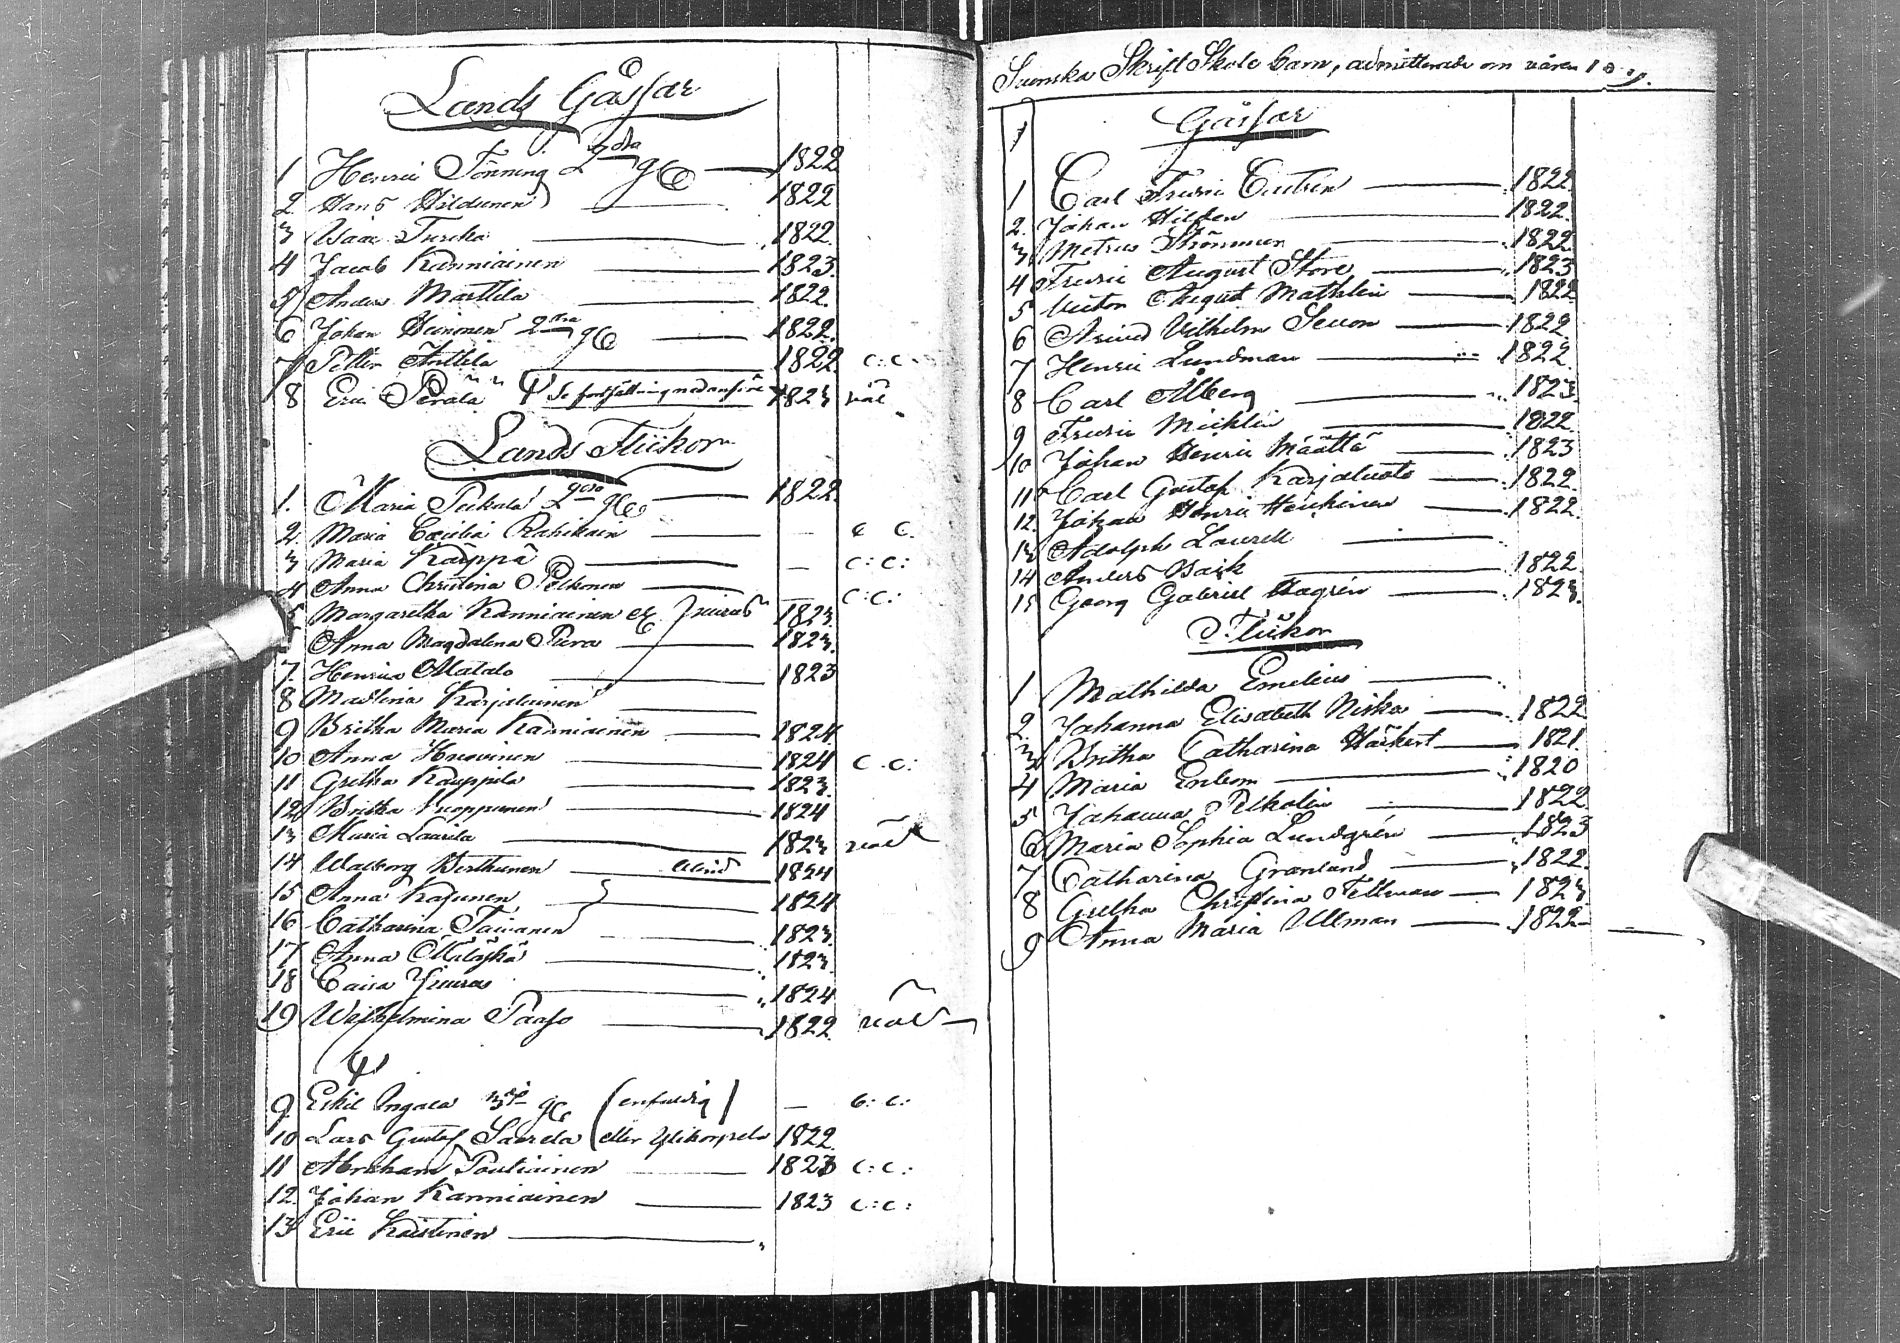 Lands Gåssar
1 Henric Tönning 2 gdra g 1822
2 Hans Hildunen 1822
3 Isaac Tureka 1822
4 Jacob Kanniainen 1823
5 Anders Marttila 1822
6 Johan Heinonen 2 dra g 1822
7 Petter Anttila 1822 c:c:
8 Eric Perälä Se fortsättning nedanföre 1823 näl
Lands Flickor
1. Maria Pukala 1822
2. Maria Cæcilia Rahikain — c c.
3 Maria Karppä — c:c:
4 Anna Christina Pelkonen — c:c:
5 Margaretha Kanniainen 1823
Anna Magdalena Piira 1823
7. Henrica Matalo 1823
8 Madlena Karjalainen
9 Britha Maria Kanniainen 1824
10 Anna Huovinen 1824 c.c:
11 Gretha Kauppila 1823
12 Britha Kuoppunen 1824
13 Maria Laurila 1823
14 Walborg Berthunen blind 1824
15 Anna Kajunen 1824
16 Catharina Taivanen 1823
17 Anna Määttä 1823
18 Caisa Juuras 1824
19 Wilhelmina Paaso 1822
9 Eskil Ingala (enfaldig) — c:c:
10 Lars Gustaf Saarela (eller Ylikorpela 1822
11 Abraham Pouliainen 1823 c:c:
12. Johan Kanniainen 1823 c:c:
13 Eric Kaistinen
Svenska Skrift Skole barn, admitterade om våren
Gåssar
1 Carl Fredric Castrén 1822
2. Johan Hilden 1822
3 Metrus Strömmer 1822
4 Fredric August Store 1823
5 Victor August Mathlin 1822
6 Arvid Vilhelm Sevon 1822
7 Henric Lundman 1822
8 Carl Alberg 1823
9 Fredric Michlin 1822
10 Johan Henric Määttä 1823
11 Carl Gustaf Karjaluoto 1822
12. Johan Henric Heickinen 1822
13 Adolph Laurell
14 Anders Back 1822
15 Georg Gabriel Hagrén 1823
D:o Flickor
1 Mathilda Emelius
2. Johanna Elisabeth Niska 1822
3 Britha Catharina Häckert 1821
4 Maria Enbom 1820
5 Johanna Pelkolin 1822
6 Maria Sophia Lundgrén 1823
7 Catharina Granlund 1822
8 Gretha Christina Fellman 1823
9 Anna Maria Ullman 1822